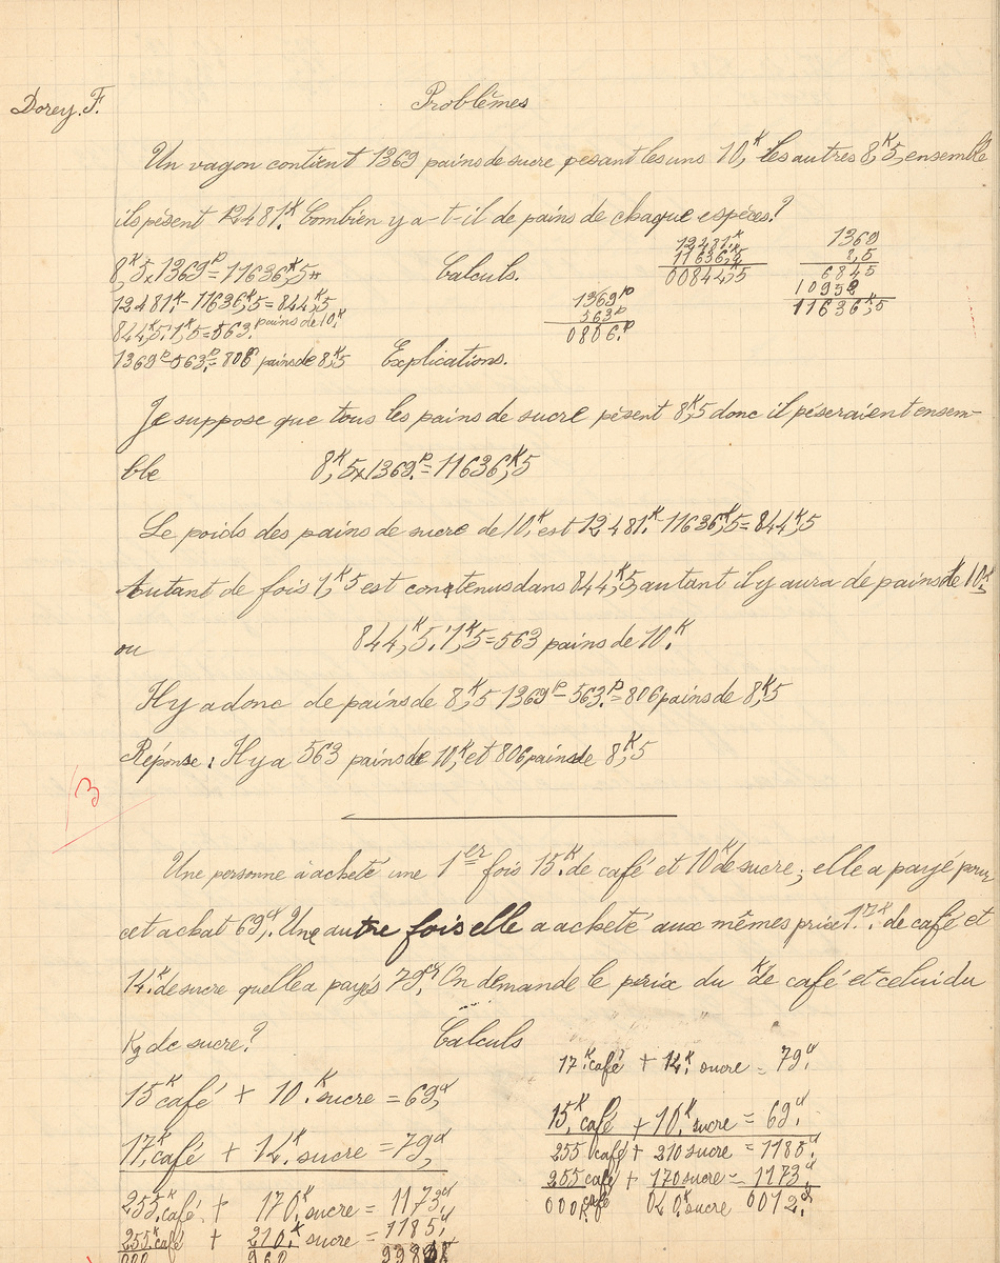 Dorey. F.
Problèmes
Un vagon contient 1369 pains de sucre pesant les uns 10,ᴷ les autres 8,ᴷ5, ensemble
ils pèsent 12481.ᴷ Combien y a-t-il de pains de chaque espèces?
8,ᴷ5 x 1369ᴾ = 11636,ᴷ5
12481.ᴷ - 11636,ᴷ5 = 844,ᴷ5
844,ᴷ5 : 1,ᴷ5 = 563. pains de 10.ᴷ
1369ᴾ - 563.ᴾ = 806 pains de 8,ᴷ5
Calculs.
1369ᴾ
563ᴾ
0806.ᴾ
12481.ᴷ
11636,ᴷ5
00844,ᴷ5
1369
8,5
6845
10952
11636,ᴷ5
Explications.
Je suppose que tous les pains de sucre pèsent 8,ᴷ5 donc il pèseraient ensem-
ble 8,ᴷ5 x 1369.ᴾ = 11636,ᴷ5
Le poids des pains de sucre de 10,ᴷ est 12481.ᴷ - 11636,ᴷ5 = 844,ᴷ5
Autant de fois 1,ᴷ5 est contenus dans 844,ᴷ5, autant il y aura de pains de 10.ᴷ
ou 844,ᴷ5 : 1,ᴷ5 = 563 pains de 10.ᴷ
Il y a donc de pains de 8,ᴷ5 1369ᴾ - 563.ᴾ = 806 pains de 8,ᴷ5
Réponse : Il y a 563 pains de 10,ᴷ et 806 pains de 8,ᴷ5
3
Une personne a acheté une 1ᵉʳ fois 15.ᴷ de café et 10ᴷ de sucre ; elle a payé pour
cet achat 69,ᶠ. Une autre fois elle a acheté aux mêmes prix 17.ᴷ de café et
14.ᴷ de sucre quelle a payés 79,ᶠ On demande le prix du ᴷ de café et celui du
Kg de sucre?
Calculs
15ᴷ café + 10.ᴷ sucre = 69,ᶠ
17,ᴷ café + 14.ᴷ sucre = 79,ᶠ
255.ᴷ café + 170.ᴷ sucre = 1173,ᶠ
255.ᴷ café + 210.ᴷ sucre = 1185,ᶠ
000 960
17.ᴷ café + 14.ᴷ sucre = 79.ᶠ
15,ᴷ café + 10.ᴷ sucre = 69.ᶠ
255 café + 210 sucre = 1185.ᶠ
255 café + 170 sucre = 1173.ᶠ
000 café 040.ᴷ sucre 0012.ᶠ